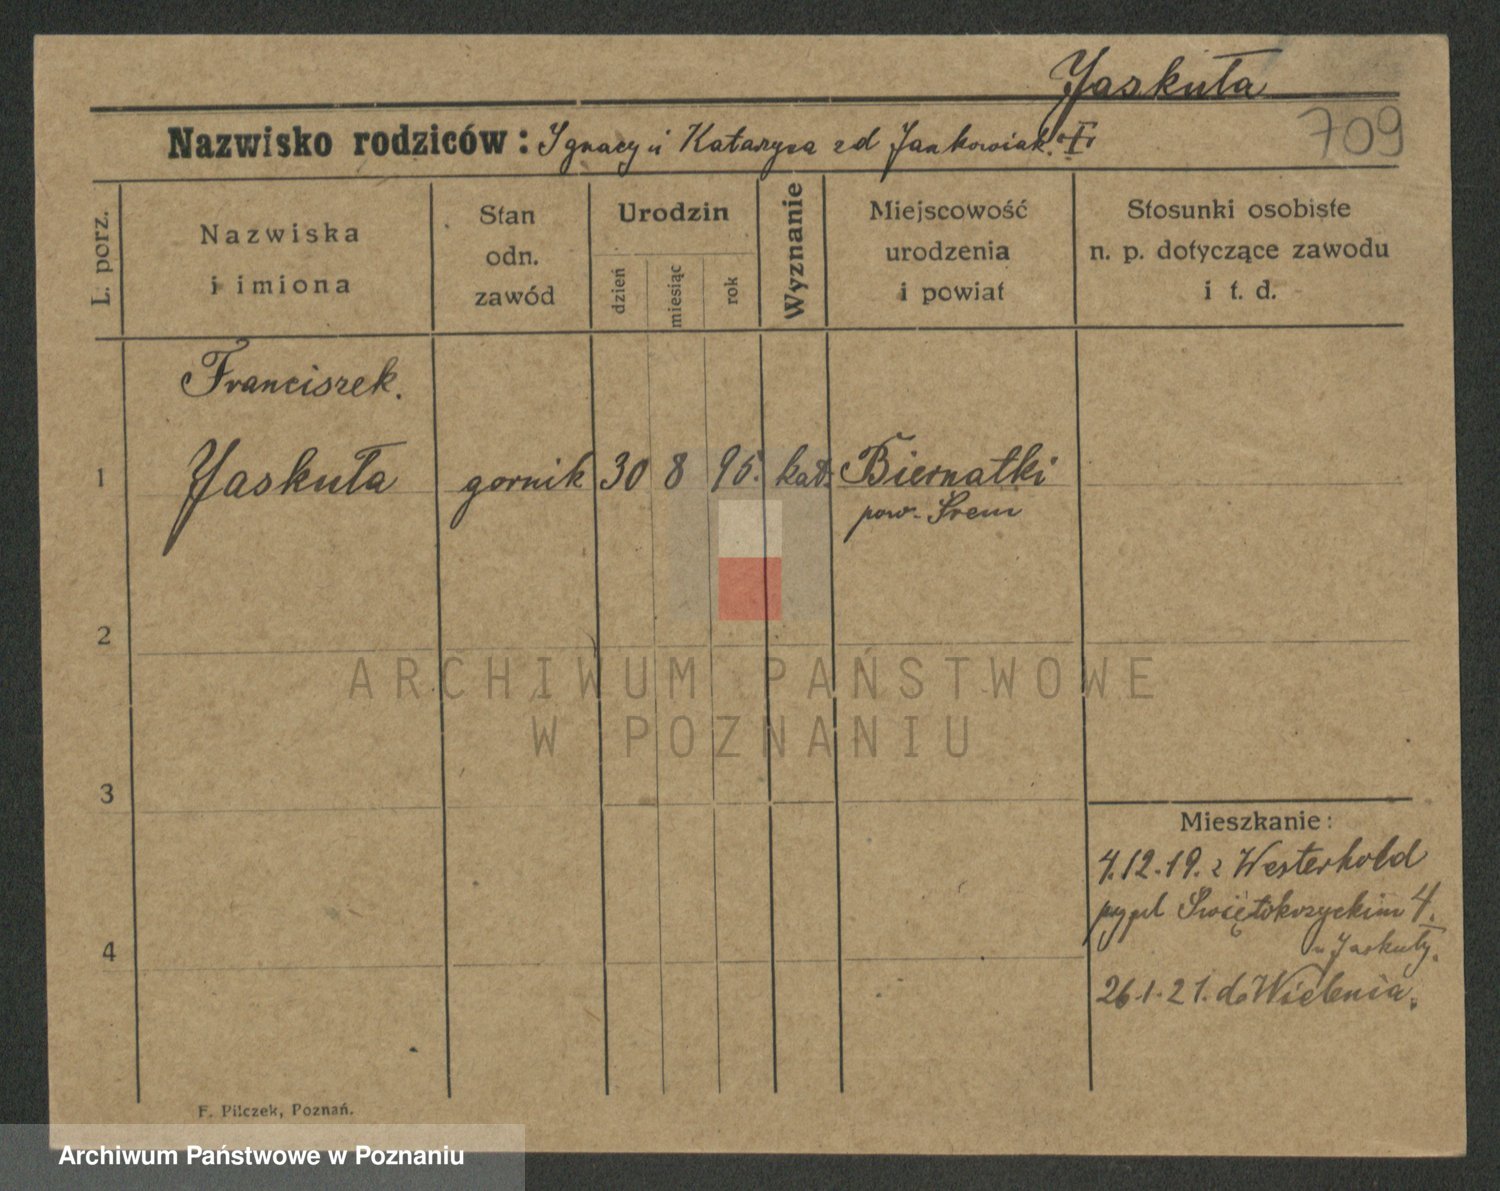 Jaskuła
709
Nazwisko rodziców: Ignacy i Katarzyna zd Jankowiak.
L. porz.
Nazwiska
i imiona
Stan
odn.
zawód
Urodzin
dzień
miesiąc
rok
Wyznanie
Miejscowość
urodzenia
i powiat
Stosunki osobiste
n. p. dotyczące zawodu
i t. d.
Franciszek.
1 Jaskuła gornik 30 8 95. kat. Biernatki
pow. Śrem
2
ARCHIWUM PAŃSTWOWE
W POZNANIU
3
Mieszkanie:
4.12.19. z Westerhold
pl Swiętokrzyckim 4.
u Jaskuły.
4
26.1.21. do
F. Pilczek, Poznań.
Archiwum Państwowe w Poznaniu